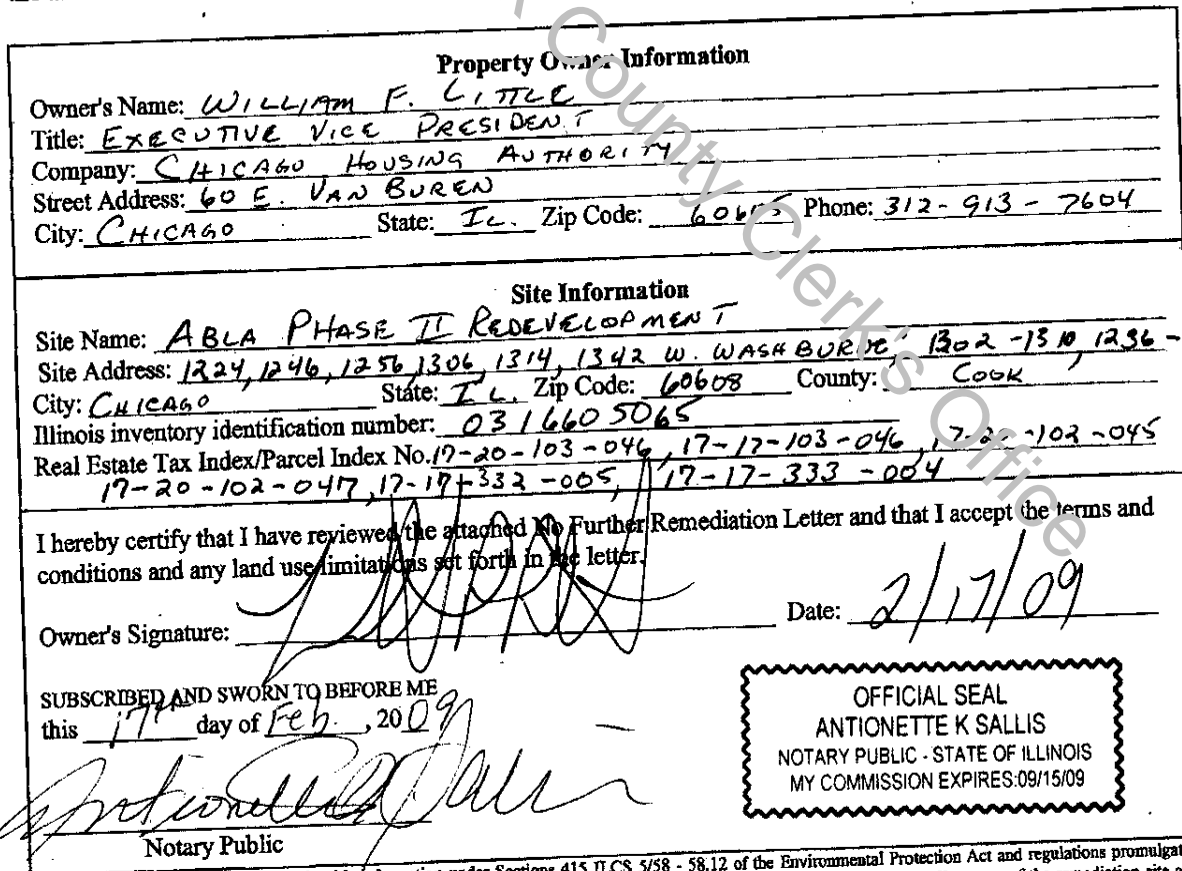 County Clerk's Office
Property Owner Information
Owner's Name: WILLIAM F. LITTLE
Title: EXECUTIVE VICE PRESIDENT
Company: CHICAGO HOUSING AUTHORITY
Street Address: 60 E. VAN BUREN
City: CHICAGO State: IL. Zip Code: 60605 Phone: 312-913-7604
Site Information
Site Name: ABLA PHASE II REDEVELOPMENT
Site Address: 1224, 1246, 1256, 1306, 1314, 1342 W. WASHBURNE, 1302-1310, 1236-
City: CHICAGO State: IL. Zip Code: 60608 County: COOK
Illinois inventory identification number: 0316605065
Real Estate Tax Index/Parcel Index No. 17-20-103-046, 17-17-103-046, 17-20-102-045
17-20-102-047, 17-17-332-005, 17-17-333-004
I hereby certify that I have reviewed the attached No Further Remediation Letter and that I accept the terms and
conditions and any land use limitations set forth in the letter.
Owner's Signature: Date: 2/17/09
SUBSCRIBED AND SWORN TO BEFORE ME
this 17th day of Feb., 2009
Antionette K Sallis
Notary Public
OFFICIAL SEAL
ANTIONETTE K SALLIS
NOTARY PUBLIC - STATE OF ILLINOIS
MY COMMISSION EXPIRES:09/15/09
under Sections 415 ILCS 5/58 - 58.12 of the Environmental Protection Act and regulations promulgat